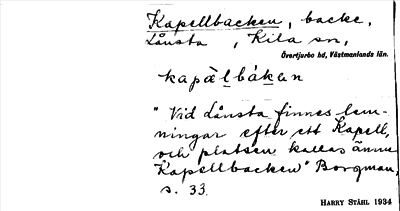 Kapellbacken, backe,
Lånsta, Kila sn,
Övertjurbo hd, Västmanlands län.
kapälbákan
"Vid Lånsta finnes lem-
ningar efter ett Kapell,
och platsen kallas ännu
Kapellbacken" Borgman,
s. 33.
HARRY STÅHL 1934